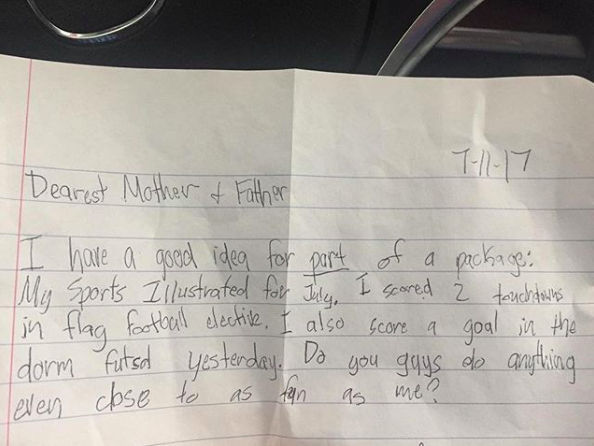 7-11-17
Dearest Mother + Father
I have a good idea for part of a package:
My Sports Illustrated for July. I scored 2 touchdowns
in flag football elective. I also score a goal in the
dorm futsal yesterday. Do you guys do anything
even close to as fun as me?